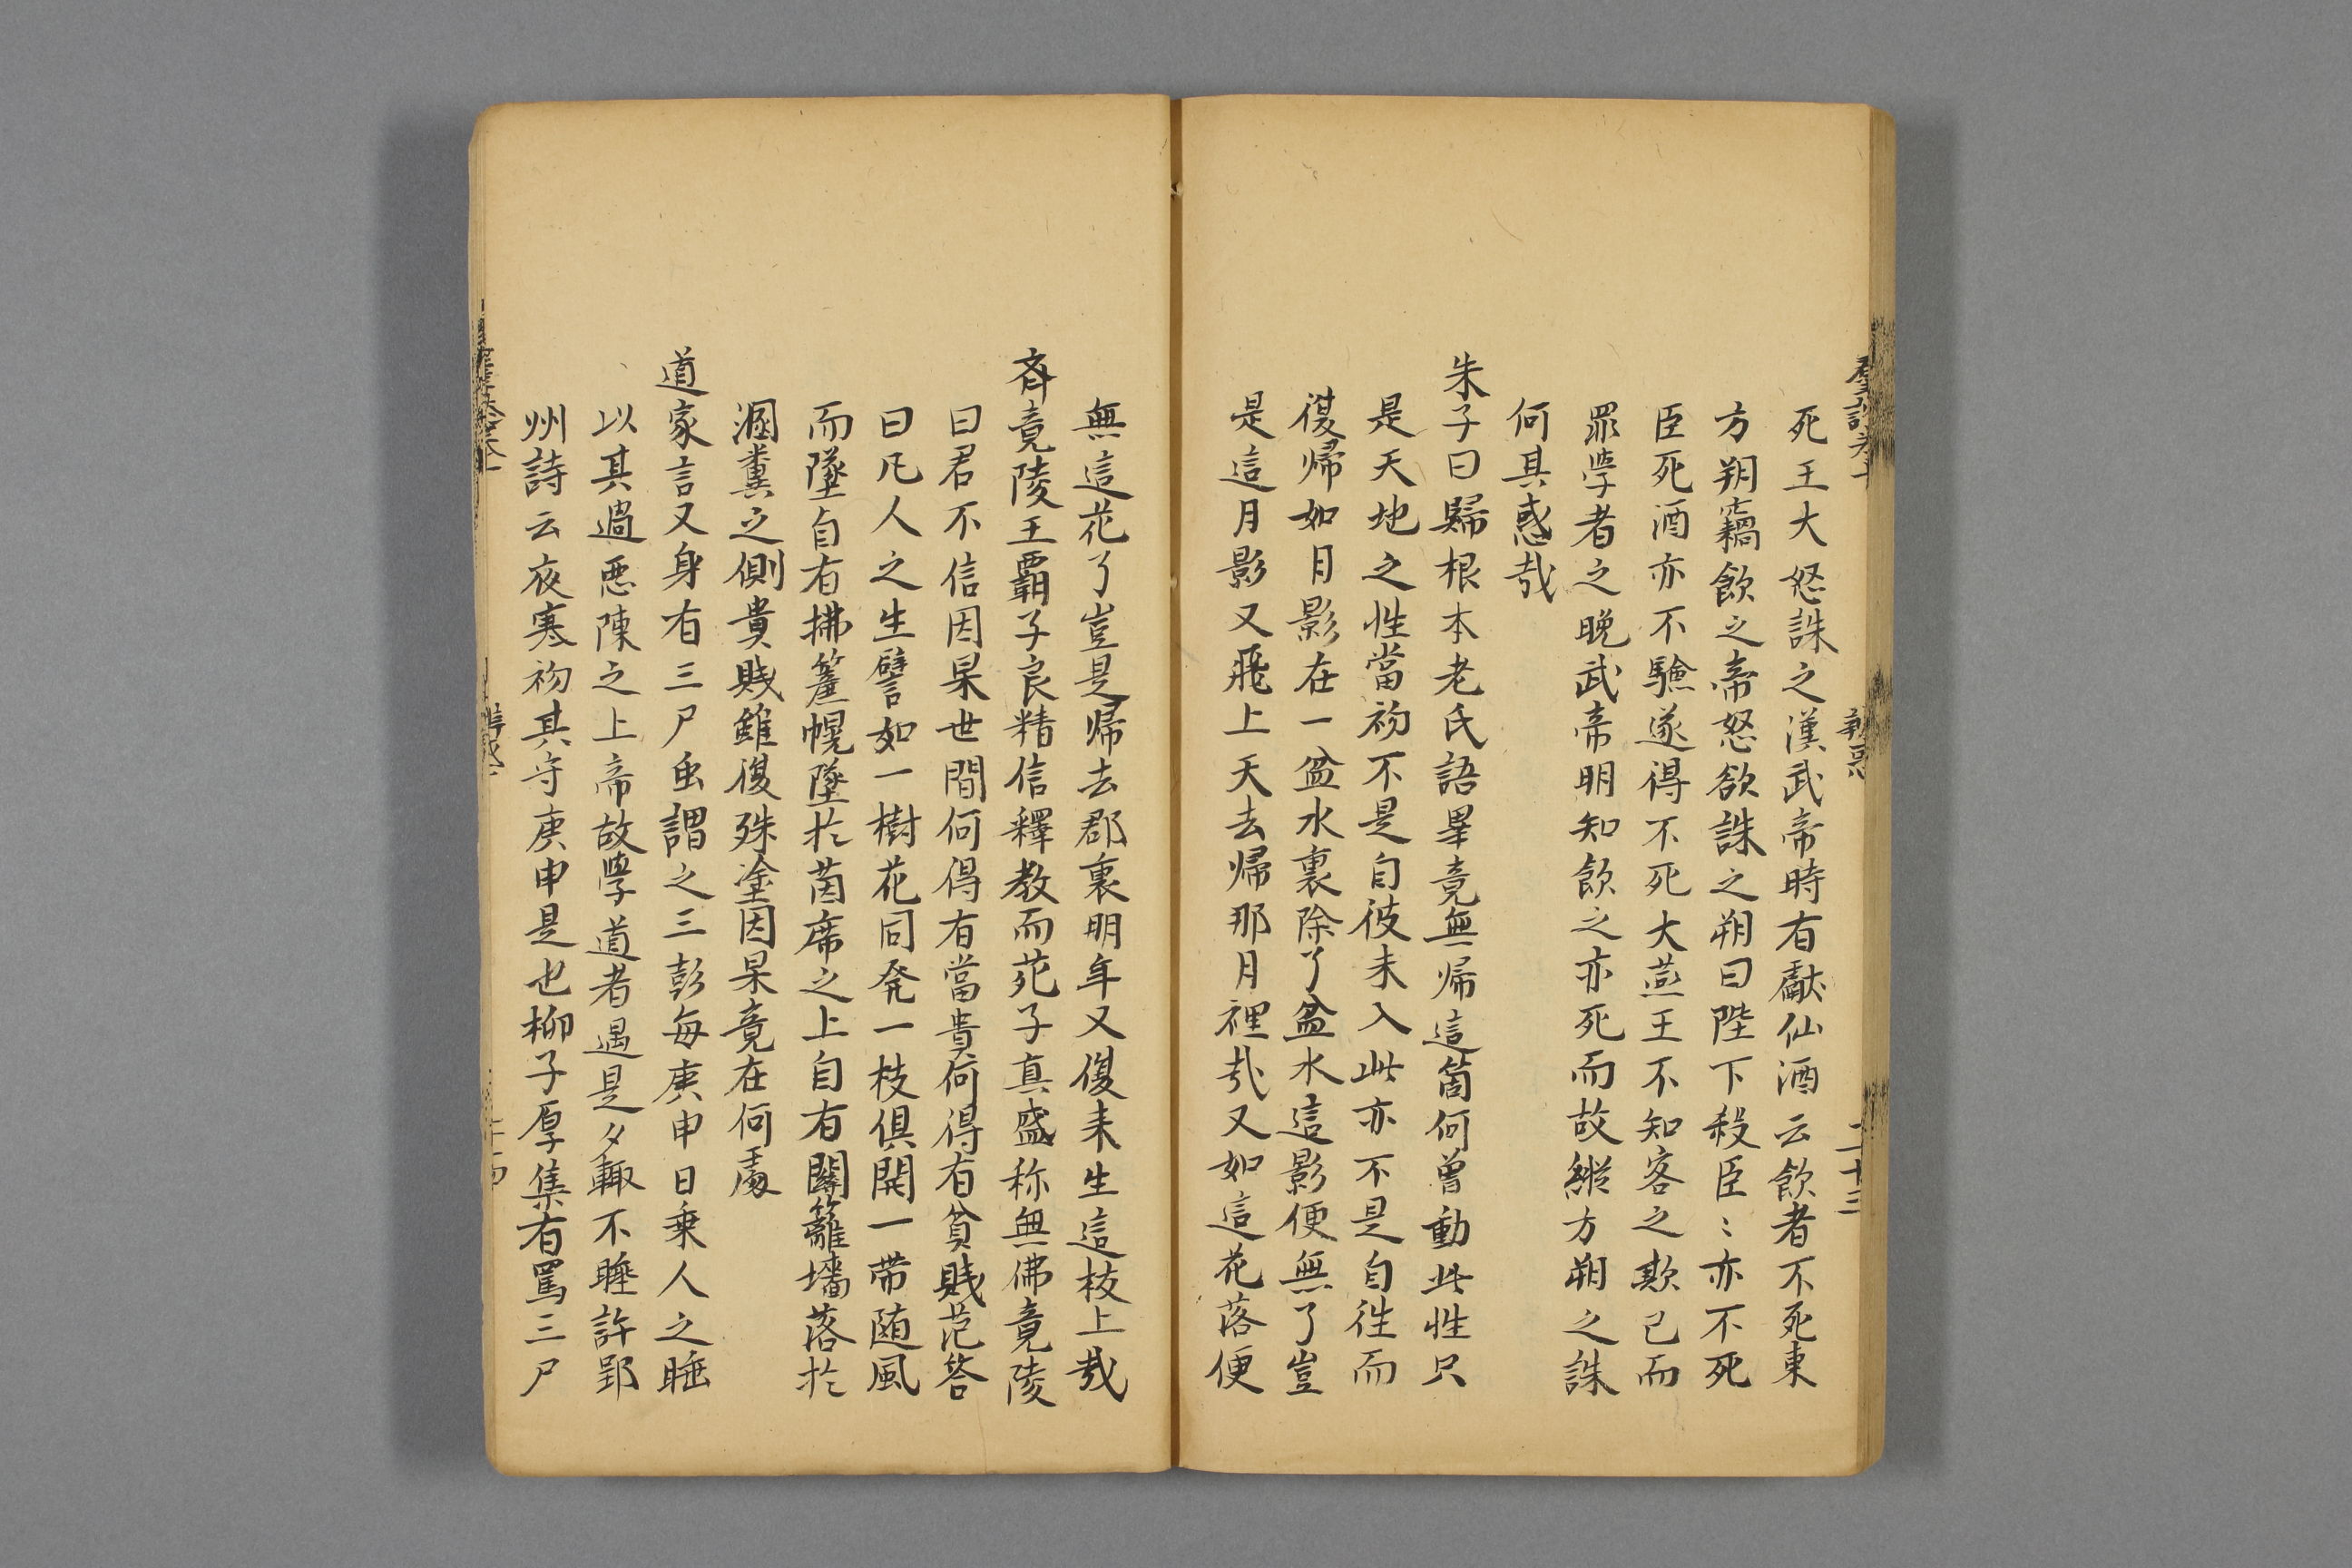 死王大怒誅之漢武帝時有獻仙酒云飲者不死東
方朔竊飲之帝怒欲誅之朔曰陛下殺臣〻亦不死
臣死酒亦不驗遂得不死大燕王不知客之欺已而
罪學者之晚武帝明知飲之亦死而故縱方朔之誅
何其惑哉
朱子曰歸根本老氏語畢竟無帰這箇何曾動此性只
是天地之性當初不是自彼来入此亦不是自徃而
復帰如月影在一盆水裏除了盆水這影便無了豈
是這月影又飛上天去帰那月裡哉又如這花落便
無這花了豈是帰去郡裏明年又復来生這枝上哉
斉竟陵王霸子良精信釋教而范子真盛称無佛竟陵
曰君不信因果世間何得有當貴何得有貧賎范答
曰凡人之生譬如一樹花同発一枝俱開一帯随風
而墜自有拂簾幌墜於茵席之上自有關籬墻落於
溷糞之側貴賎雖復殊塗因果竟在何處
道家言又身有三尸虫謂之三彭每庚申日乗人之睡
以其過悪陳之上帝故學道者遇是夕輙不睡許郢
州詩云夜寒初其守庚申是也柳子厚集有罵三尸
二十三